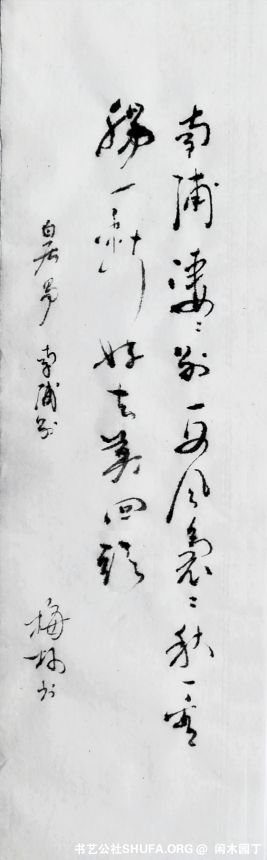 南浦凄〻别西风裊〻秋一看
腸一断好去莫回頭
白居易 南浦别
梅 书
书艺公社SHUFA.ORG @ 闲木园丁